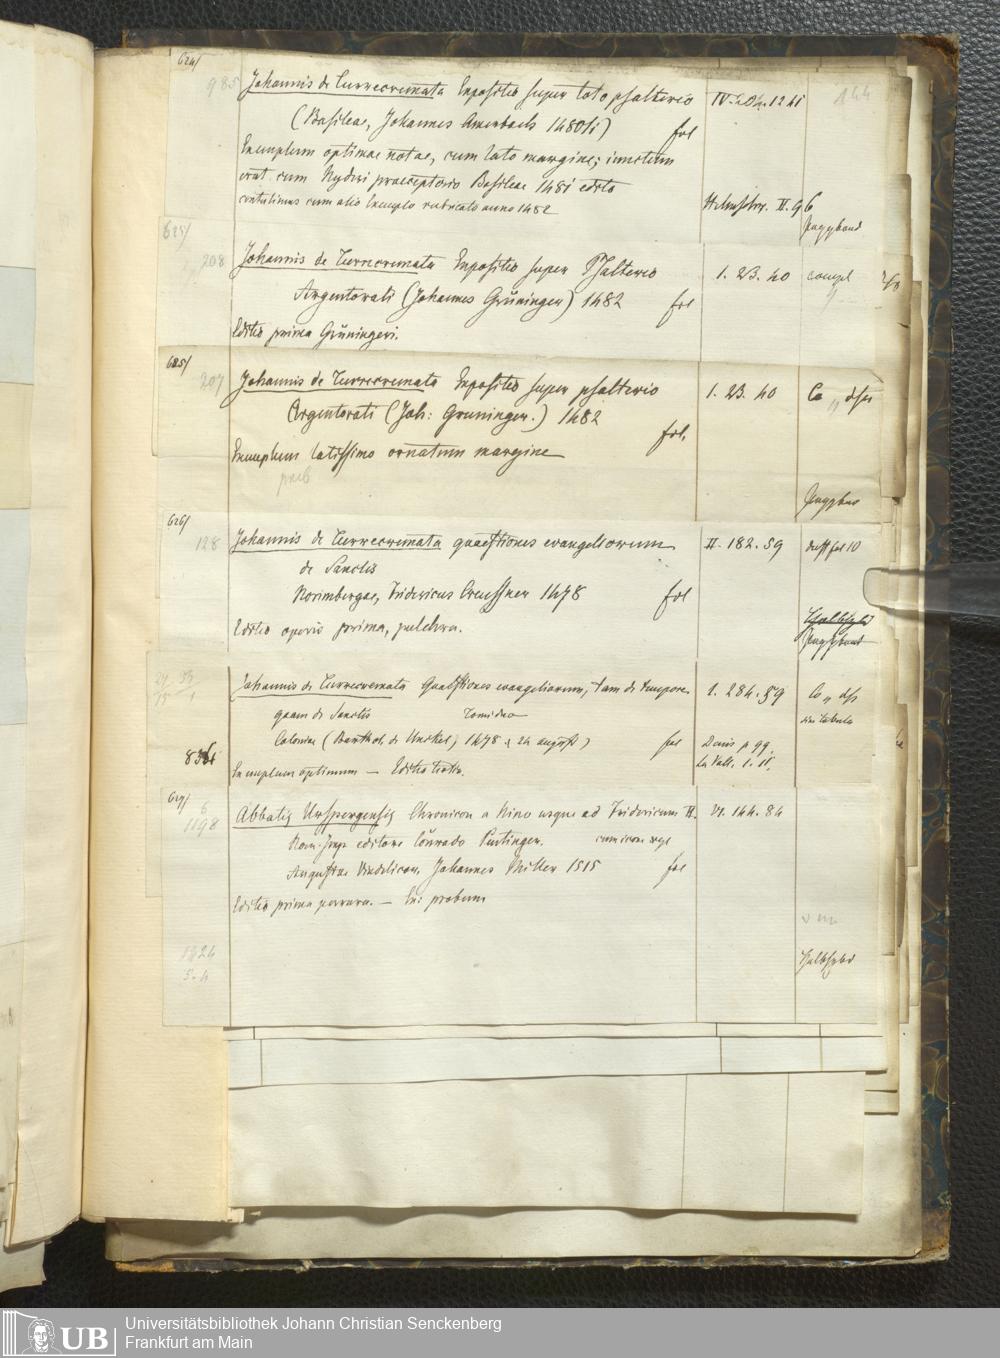 624/
985 Johannis de Turrecremata Expositio super toto psalterio IV. 204. 1241 144
(Basileae, Johannes Amerbach 1480/1) fol
Exemplum optimae notae, cum lato margine; iunctum
erat cum Nyderi praeceptorio Basileae 1481 edito
contulimus cum alio Exemplo rubricato anno 1482 II. 96
Pappband
625/
208 Johannis de Turrecremata Expositio super Psalterio 1. 23. 40 compl
Argentorati (Johannes Grüninger) 1482 fol
Editio prima Grüningeri.
625/
207 Johannis de Turrecremata Expositio super psalterio 1. 23. 40 Co
Argentorati (Joh: Gruninger.) 1482
fol.
Exemplum latissimo ornatum margine
626/
128 Johannis de Turrecremata quaestiones evangeliorum II. 182. 59 fol 10
de Sanctis
Norimbergae, Fridericus Creussner 1478 fol
Editio operis prima, pulchra.
Pappband
Johannis de Turrecremata Quaestiones evangeliorum, tam de tempore 1. 284. 59 Co
quam de Sanctis Tomi duo sine tabula
Coloniae (Barthol. de Unckel, 1478 24 august) fol Denis p 99.
La Vall. 1. 11.
Exemplum optimum — Editio
627/
6
1198 Abbatis Urspergensis Chronicon a Nino usque ad Fridericum II. VI. 144. 84
Rom. Imp. editore Conrado Peutinger. cum icon
Augustae Vindelicor. Johannes Miller 1515 fol
Editio prima perrara. — Ex: probum
1924
5.4
Halbfzbd
UB
Universitätsbibliothek Johann Christian Senckenberg
Frankfurt am Main